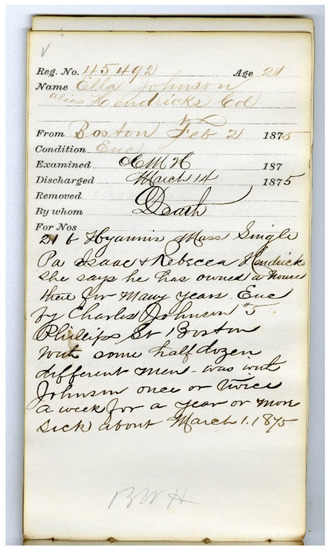 √
Reg. No. 45492 Age 21
Name Ella Johnson
alias Hendricks Col
From Boston Feb 2 1875
Condition Enc
Examined 187
Discharged March 14 1875
Removed
By whom Death
For Nos
21 b Hyannis Mass Single
Pa Isaac & Rebecca Hendrick
she says he has owned a house
there for many years Enc
by Charles Johnson 5
Phillips St Boston
with some half dozen
different men - was with
Johnson once or twice
a week for a year or mor
sick about March 1. 1875
BWH